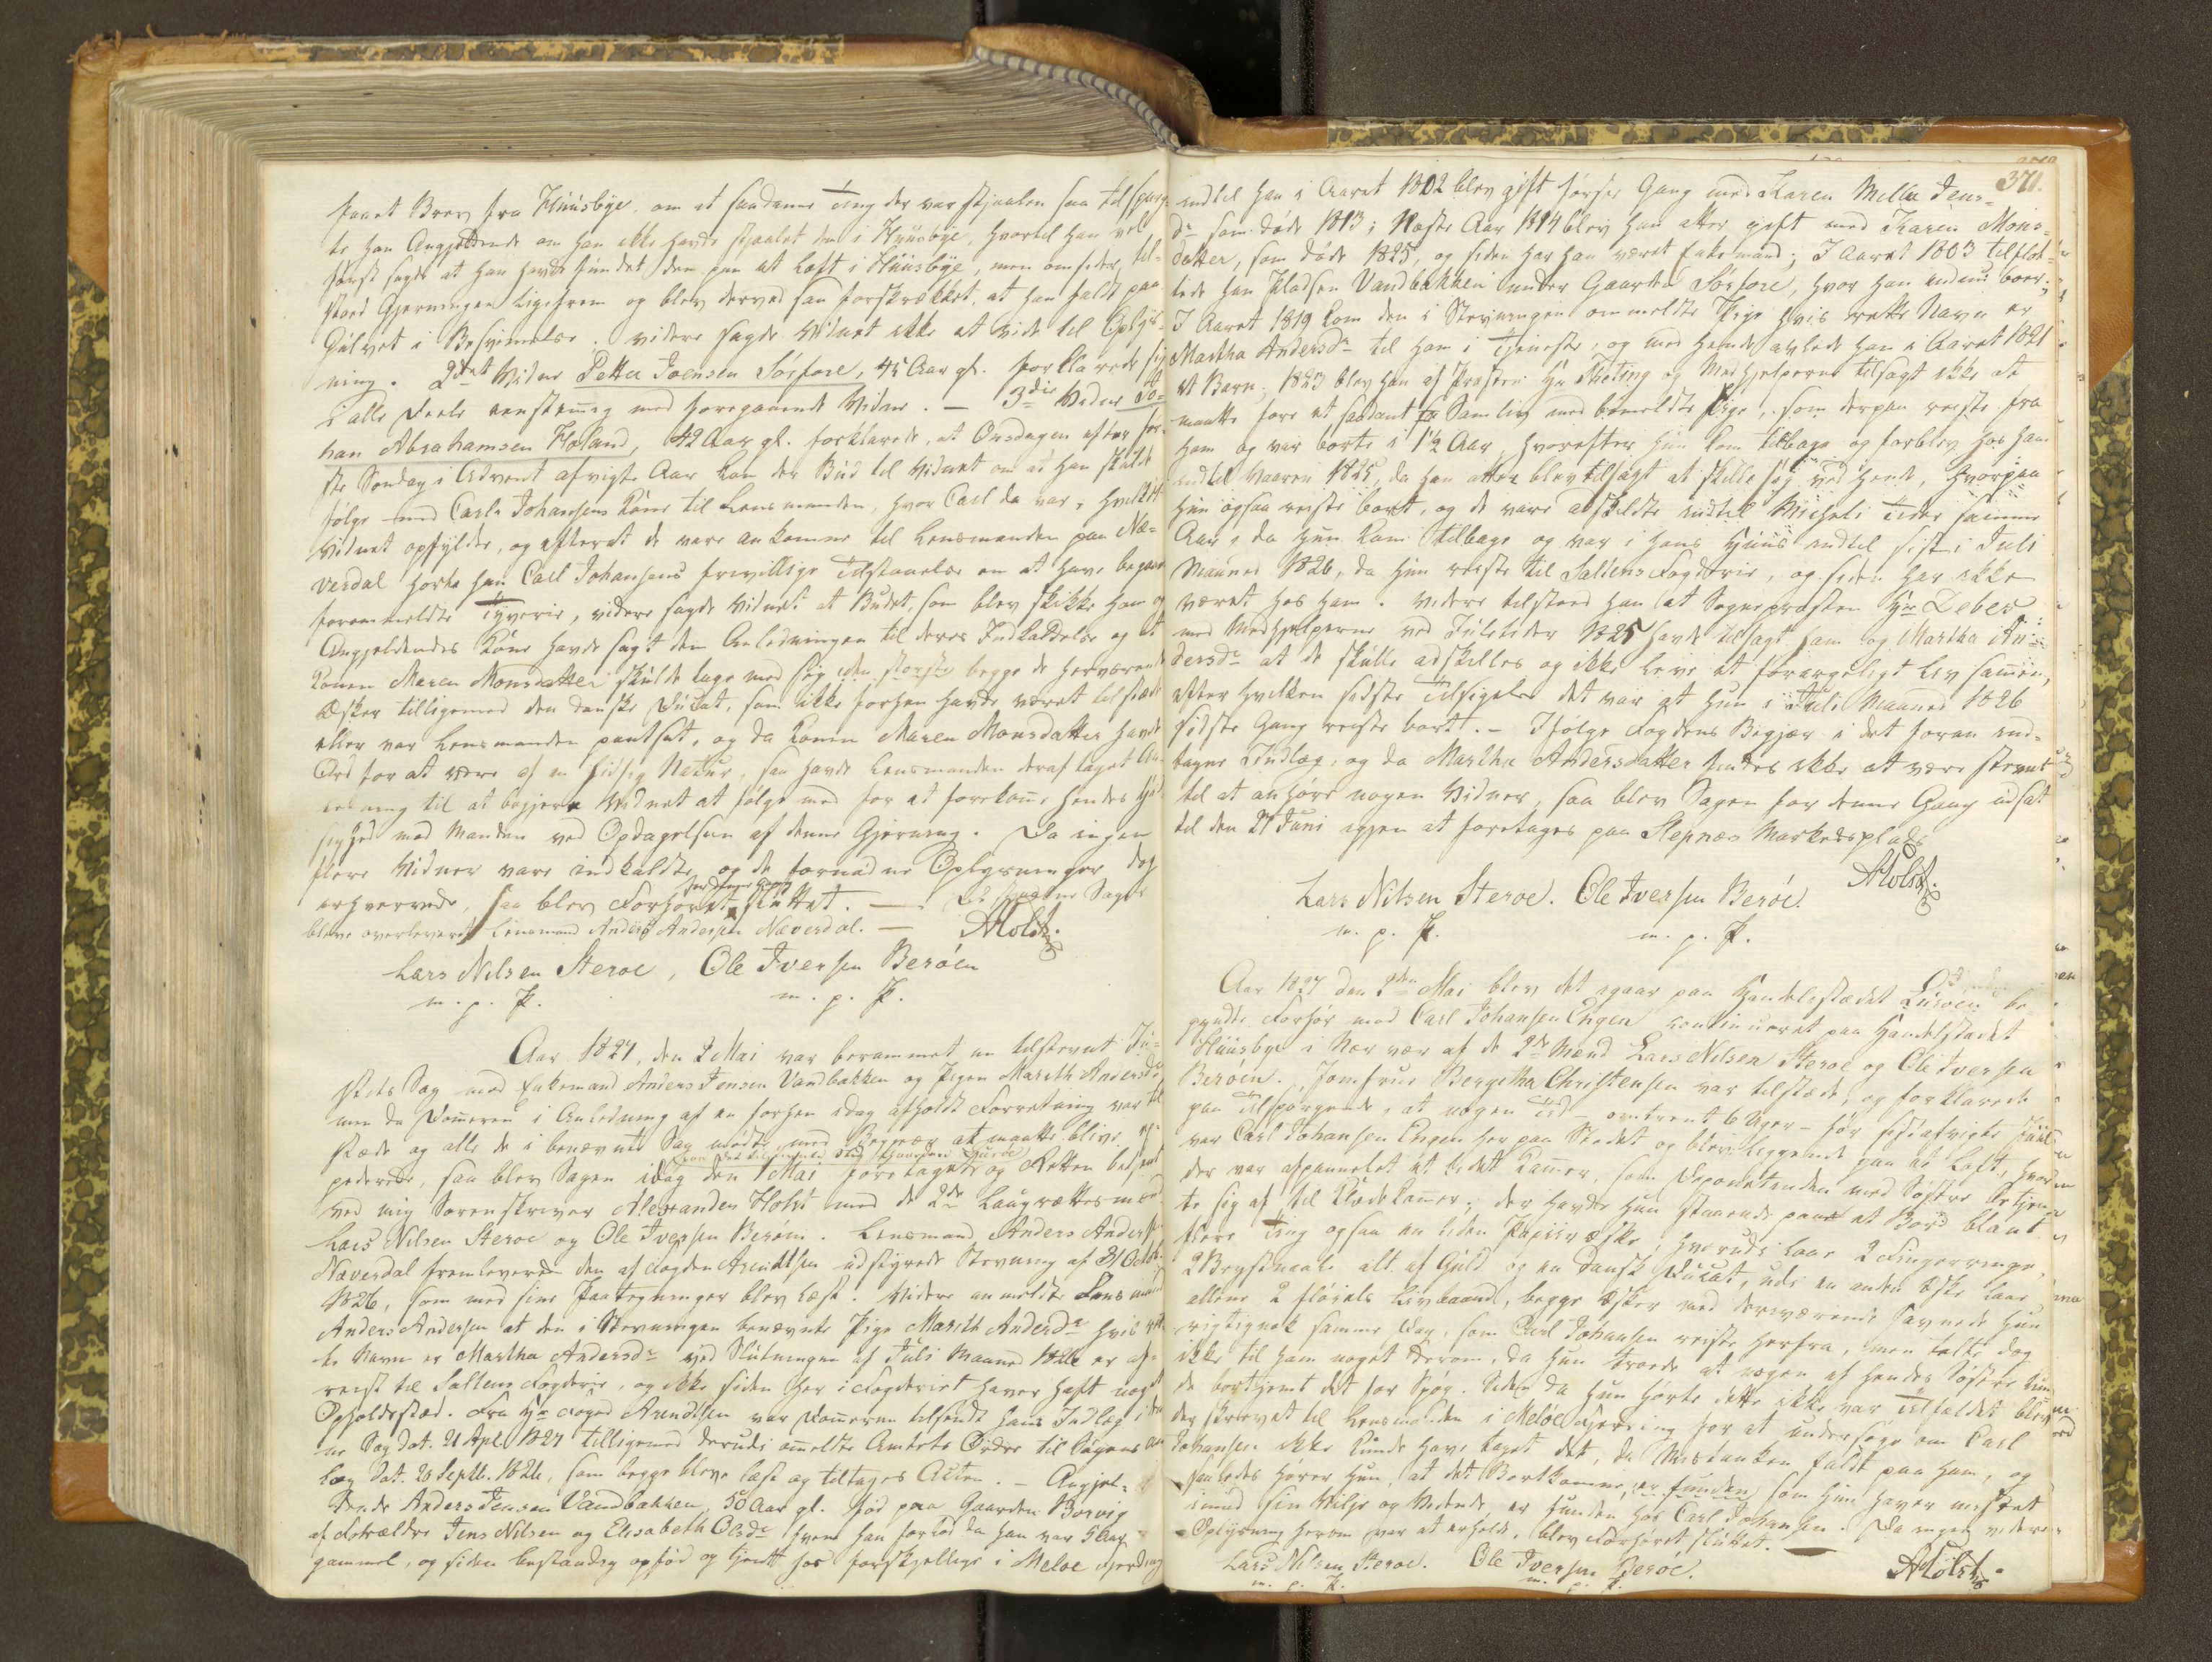 faaet Brev fra Huusbye, om at saadanne Ting der var stjaalen saa tilspurg-
te han Angjeldende om han ikke havde stjaalet den i Huusbye, hvortil han vel
først sagde at han havde fundet den paa et Loft i Huusbye, men omsider til-
stoed Gjerningen ligefrem og blev derved saa forskrækket, at han faldt paa
Gulvet i Besvimelse. videre sagde Vidnet ikke at vide til Oplys-
ning. 2det Vidne Petter Joensen Sörfore, 45 Aar gl. forklarede sig
i alle Deele eenstemig med foregaaende Vidne. — 3die Vidne Jo-
han Abrahamsen Holand, 42 Aar gl. forklarede, at Onsdagen efter før-
ste Søndag i Advent afvigte Aar kom der Bud til Vidnet om at han skulde
følge med Carl Johansens Kone til Lensmanden, hvor Carl da var, hvilket
Vidnet opfyldte, og efterat de vare ankomne til Lensmanden paa Næ-
verdal hørte han Carl Johansens frivillige Tilstaaelse om at have begaaet
forommeldte Tyverie, videre sagde Vidnet at Budet, som blev skikket ham og
Angjeldendes Kone havde sagt den Anledningen til deres Indkaldelse og at
Konen Maren Monsdatter skulde tage med sig den største begge de herværende
Æsker tilligemed den danske Ducat, som ikke forhen havde været tilstæde
eller var Lensmanden pantsat, og da Konen Maren Monsdatter havde
Ord for at være af en hidsig Natur, saa havde Lensmanden deraf taget An-
ledning til at begjere Vidnet at følge med for at forekome hendes hid-
sighed mod Manden ved Opdagelsen af denne Gjerning. Da ingen
flere Vidner vare indkaldte og de fornødne Oplysninger dog
erhvervede, saa blev Forhøret sluttet. —
bleve overleveret Lensmand Anders Andersen Næverdal. — AHolst.
Lars Nilsen Steroe, Ole Iversen Berøen
m. p. P. m. p. P.
Aar 1827, den 2 Mai var berammet en tilstevnt Ju-
stits Sag mod Enkemand Anders Jensen Vandbakken og Pigen Mareth Andersdr
men da Domeren i Anledning af en forhen idag afholdt Forretning var til
stæde og alle de i benævnte Sag mødte med Begjær at maatte blive ex-
pederede, saa blev Sagen idag den 1 Mai foretaget og Retten betjent
ved mig Sorenskriver Alexander Holst med de 2de Laugrettesmænd
Lars Nilsen Steroe og Ole Iversen Berøen. Lensmand Anders Andersen
Næverdal fremleverede den af Fogden Arendtsen udstyrede Stevning af 31 Octob.
1826, som med sine Paategninger blev læst. Videre anmeldte Lensmand
Anders Andersen at den i Stevningen benævnte Pige Mareth Andersdr hvis ret-
te Navn er Martha Andersdr ved Slutningen af Juli Maaned 1826 er af-
reist til Saltens Fogderie, og ikke siden her i Fogderiet haver haft noget
Opholdsstæd. Fra Hr Foged Arendtsen var Domeren tilsendt hans Indlæg i den-
ne Sag dat. 21 Apl. 1827 tilligemed derudi omeldte Amtets Ordre til Sagens An-
læg dat. 20 Septb. 1826, som begge bleve læst og tiltages Acten. — Angjel-
dende Anders Jensen Vandbakken, 50 Aar gl. fød paa Gaarden Borvig
af Forældre Jens Nilsen og Elisabeth Olsdr hvem han forlod da han var 5 Aar
gammel, og siden bestandig opfød og tjent hos forskjellige i Meløe Fjerding

371.
indtil han i Aaret 1802 blev gift første Gang med Karen Mille Jens-
dr som døde 1813; Næste Aar 1814 blev han atter gift med Karen Mons-
datter, som døde 1825, og siden har han været Enkemand; I Aaret 1803 tilflyt-
tede han Pladsen Vandbakken under Gaarden Sörfore, hvor han endnu boer;
I Aaret 1819 kom den i Stevningen ommeldte Pige hvis rette Navn er
Martha Andersdr til ham i Tjeneste, og med hende avlede han i Aaret 1821
et Barn; 1823 blev han af Præsten Hr Meting og Medhjelperne tilsagt ikke at
maatte føre et saadant Samliv med bemeldte Pige, som derpaa reiste fra
ham og var borte i 1½ Aar, hvorefter hun kom tilbage og forblev hos ham
indtil Vaaren 1825, da han atter blev tilsagt at skille sig ved hende, hvorpaa
hun ogsaa reiste bort, og de vare adskildte indtil Micheli Tider samme
Aar, da hun kom tilbage og var i hans Huus indtil sist i Juli
Maaned 1826, da hun reiste til Saltens Fogderie, og siden har ikke
været hos ham. videre tilstoed han at Sognepræsten Hr Debes
med Medhjelperne ved Juletider 1825 havde tilsagt ham og Martha An-
dersdr at de skulle adskilles og ikke leve et forargeligt Liv sammen,
efter hvilken sidste Tilsigelse det var at hun i Juli Maaned 1826
sidste Gang reiste bort. — Ifølge Fogdens Begjær i det foran ind-
tagne Indlæg, og da Martha Andersdatter findes ikke at være stevnt
til at anhøre nogen Vidner, saa blev Sagen for denne Gang udsat
til den 27 Juni igjen at foretages paa Stepnæs Markedsplads
AHolst.
Lars Nilsen Steroe. Ole Iversen Berøe.
m. p. P. m. p. P.
Aar 1827 den 2den Mai blev det igaar paa Handelstædet Luroen be-
gyndte Forhør mod Carl Johansen Engen continueret paa Handelstædet
Huusbye i Nærvær af de 2de Mænd Lars Nilsen Steroe og Ole Iversen
Berøen. Jomfrue Bergitha Christensen var tilstæde, og forklarede
paa Tilspørgende, at nogen Tid - omtrent 6 Uger - før sistafvigte Juul
var Carl Johansen Engen her paa Stedet og blev liggende paa et Loft, hvor
der var afpannelet et lidet Kamer, som Deponentinden med Søstre betjen-
te sig af til Klædekamer; der havde hun staaende paa et Bord blant
flere Ting ogsaa en liden Papiir æske, hvorudi laae 2 Fingerringe,
2 Brystnaale alt af Guld og en Dansk Ducat, udi en anden Æske laae
allene 2 fløiels Livbaand, begge Æsker med derværende savnede hun
rigtignok samme Dag, som Carl Johansen reiste herfra, men talte dog
ikke til ham noget derom, da hun troede at nogen af hendes Søstre kun-
de bortgjemt det for Spøg. Siden da hun hørte dette ikke var Tilfældet blev
der skrevet til Lensmanden i Meløe Fjerding for at undersøge om Carl
Johansen ikke kunde have taget det, da Mistanken faldt paa ham, og
saaledes hører hun, at det Bortkomne, er funden som hun haver mistet
imod sin Vilje og Vidende er funden hos Carl Johansen. Da ingen videre
Oplysning herom var at erholde, blev Forhøret sluttet. —
Lars Nilsen Steroe. Ole Iversen Berøe. AHolst.
m. p. P. m. p. P.